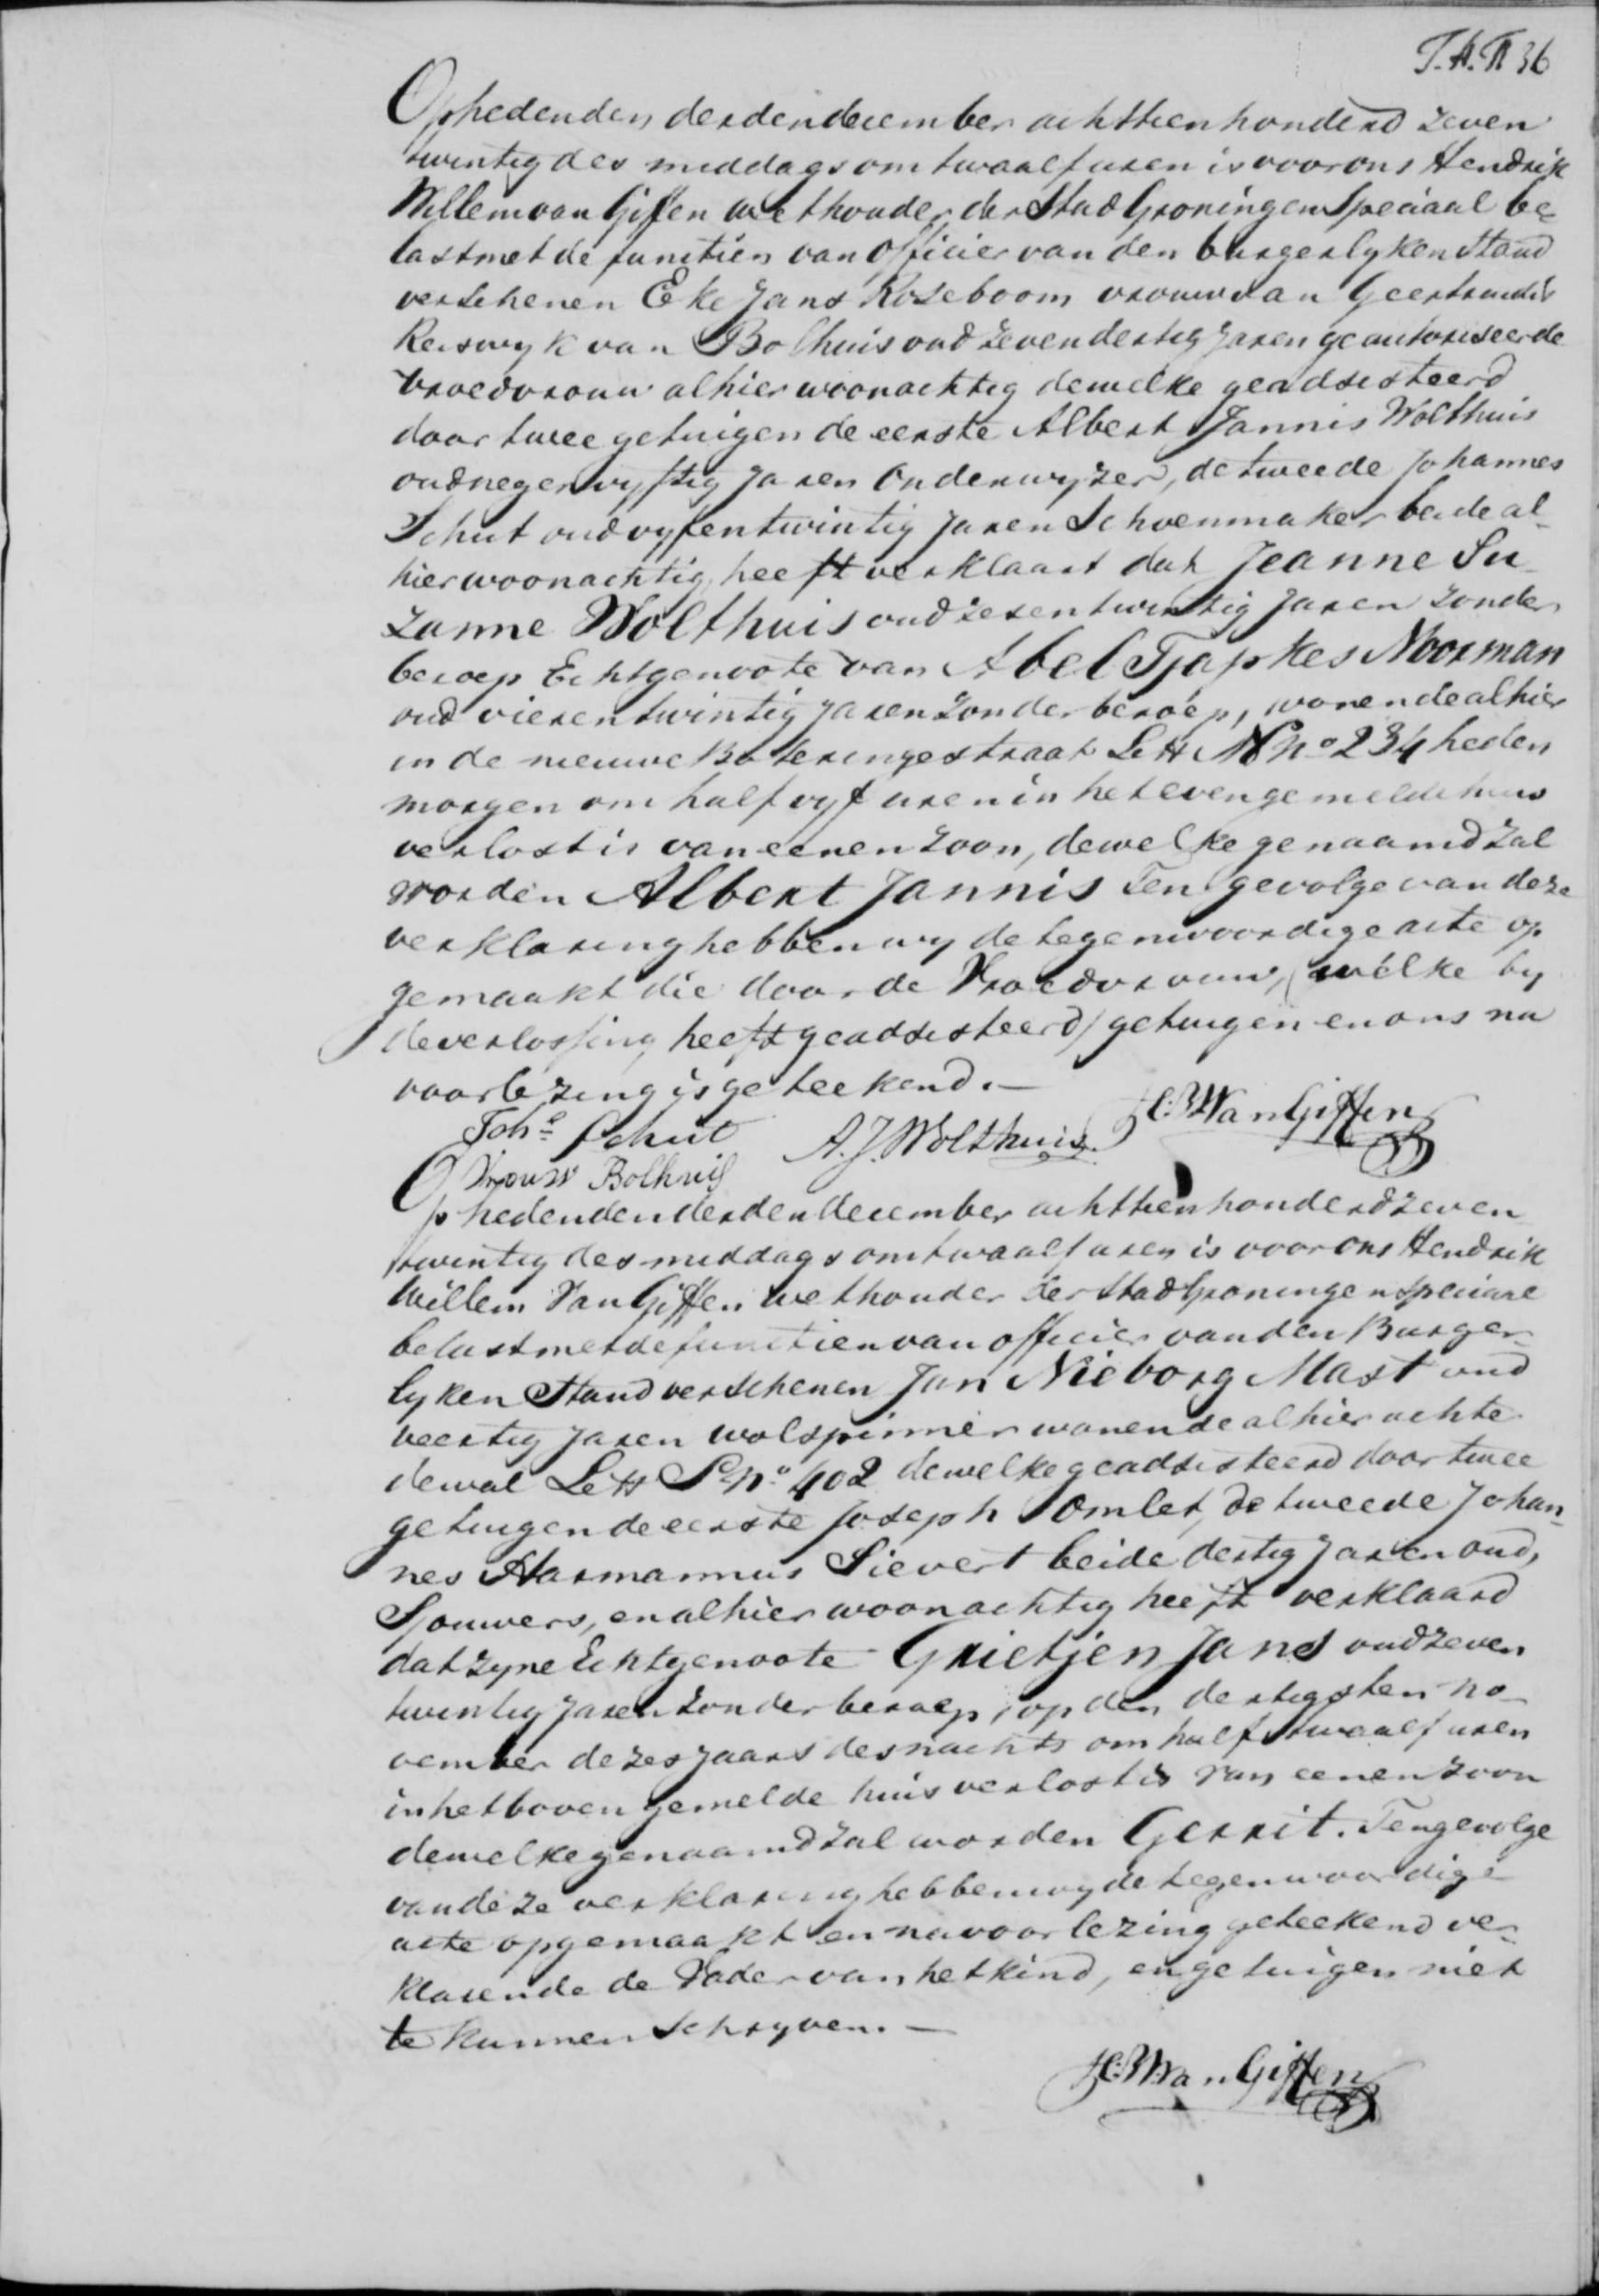 Op heden den derden december achttienhonderd zeven
twintig des middags om twaalf uren is voor ons Hendrik
Willem van Giffen wethouder der Stad Groningen Speciaal be-
last met de functien van Officier van den burgerlyken Stand
verschenen Eke Jans Roseboom vrouw van Geertruidus
Reiswyk van Bolhuis oud zevendertig jaren geautoriseerde
vroedvrouw alhier woonachtig dewelke geadsisteerd
door twee getuigen de eerste Albert Jannis Wolthuis
oud negenvyftig jaren Onderwyzer, de tweede Johannes
Schut oud vyfentwintig jaren Schoenmaker beide al-
hier woonachtig, heeft verklaart dat Jeanne Su-
zanne Wolthuis oud zesentwintig jaren zonder
beroep Echtgenoote van Abel Tjapkes Noorman
oud vierentwintig jaren zonder beroep, wonende alhier
in de nieuwe Boteringestraat Lett N no 234 heden
morgen om half vyf uren in het evengemelde huis
verlost is van eenen zoon, dewelke genaamd zal
worden Albert Jannis Ten gevolge van deze
verklaring hebben wy de tegenwoordige acte op
gemaakt die door de Vroedvrouw, (welke by
de verlossing heeft geadsisteerd) getuigen en ons na
voorlezing is geteekend. —
H:W: Van Giffen
Johs Schut A. J. Wolthuis
Vrouw Bolhuis
Op heden den derden december achttien honderd zeven
twintig des middags om twaalf uren is voor ons Hendrik
Willem Van Giffen wethouder der Stad Groningen Speciaal
belast met de functien van officier van den Burger-
lyken Stand verschenen Jan Nieborg Mast oud
veertig jaren wolspinner wonende alhier achter
de wal Lett S no 402 dewelke geadsisteerd door twee
getuigen de eerste Joseph Omlet, de tweede Johan-
nes Harmannus Sievert beide dertig jaren oud,
Sjouwers, en alhier woonachtig heeft verklaard
dat zyne Echtgenoote Grietjen Jans oud zeven
twintig jaren zonder beroep, op den dertigsten no-
vember dezes jaars des nachts om half twaalf uren
in het bovengemelde huis verlost is van eenen zoon
dewelke genaamd zal worden Gerrit. Ten gevolge
van deze verklaring hebben wy de tegenwoordige
acte opgemaakt en na voorlezing geteekend ver-
klarende de Vader van het kind, en getuigen niet
te kunnen Schryven. —
H:W: Van Giffen